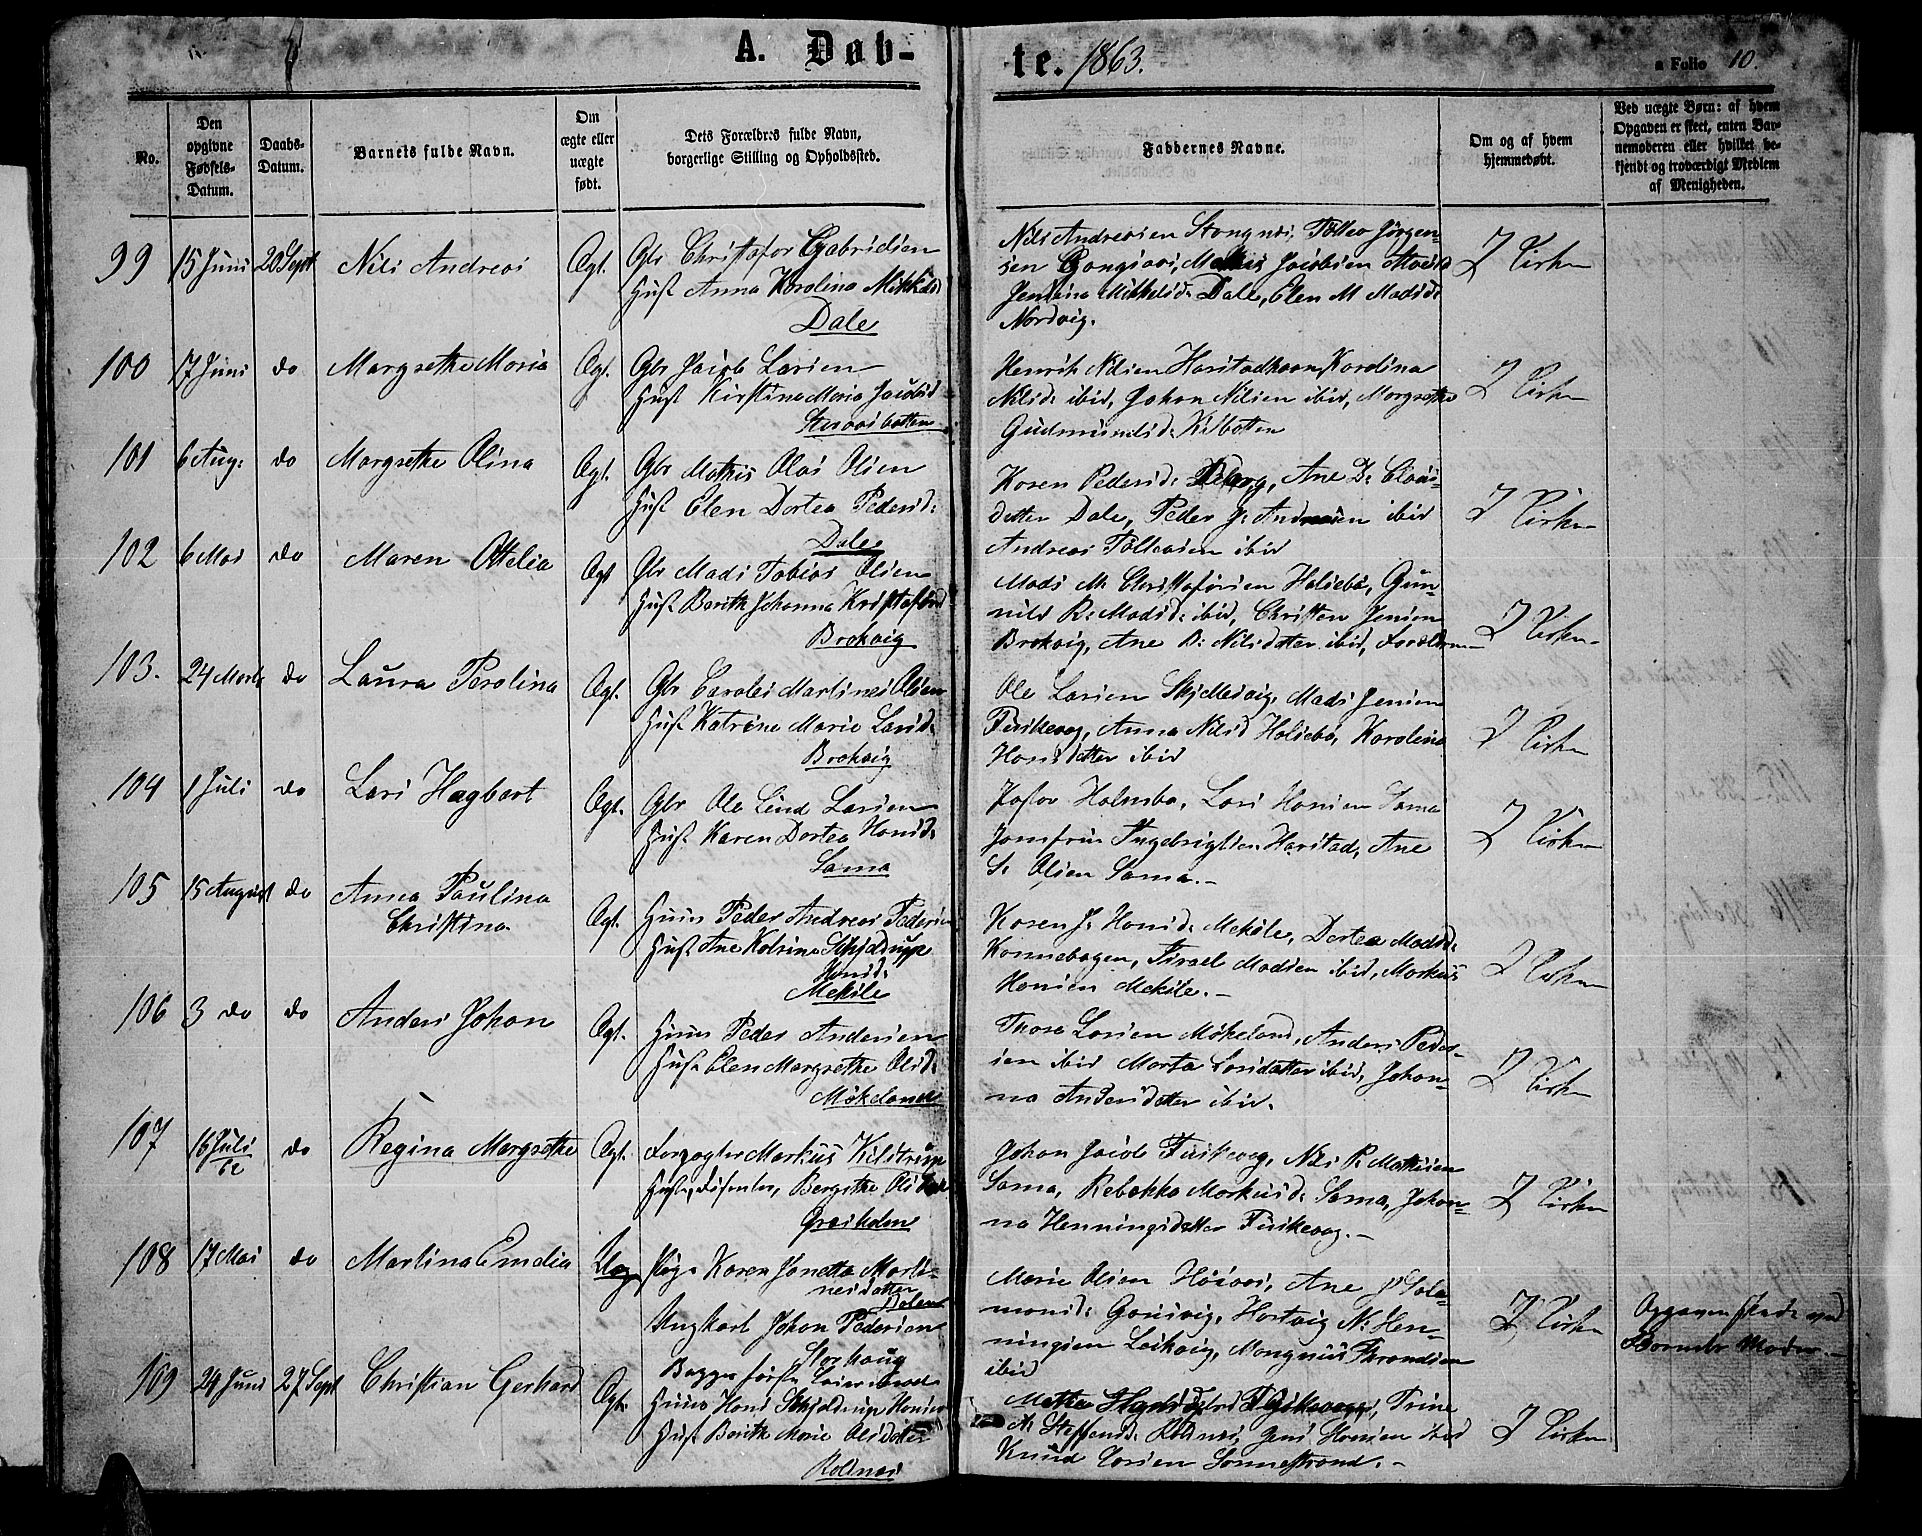 A. Døb-
te. 1863.
a Folio 10.
No.
Den opgivne Fødsels-Datum.
Daabs-Datum.
Barnets fulde Navn.
Om ægte eller uægte født.
Dets Forældres fulde Navn,
borgerlige Stilling og Opholdssted.
Faddernes Navne.
Om og af hvem
hjemmedøbt.
Ved uægte Børn: af hvem
Opgaven er skeet, enten Bar-
nemoderen eller hvilket be-
kjendt og troværdigt Medlem
af Menigheden.
99 15 Juni 20 Sept Nils Andreas Ægt. Gbr Christofor Gabrielsen
Hust Anna Karolina Mikkelsd
Dale
Nils Andreasen Stongnes, Tollev Jørgen-
sen Gangsaas, Jacobsen
Jensina Mikkelsd: Dale, Elen M Madsd:
Nordvig.
I Kirken
100 17 Juni do Margrethe Maria Ægt. Gbr Jacob Larsen
Hust Kirstina Maria Jacobsd
Stensaasbotten
Henrik Nilsen Harstadhavn, Karolina
Nilsd: ibid, Johan Nilsen ibid, Margrethe
Gudmundsd: Kilbotten
I Kirken
101 6 Aug: do Margrethe Olina Ægt. Gbr Mathis Olai Olsen
Hust Elen Dortea Pedersd:
Dale
Karen Pedersd: Ane D: Claus-
datter Dale, Peder J: Andreasen ibid
Andreas Tollevsen ibid
I Kirken
102 6 Mai do Maren Ottelia Ægt Gbr Mads Tobias Olsen
Hust Berith Johanna Kristofersd
Brokvig
Mads M Christofersen Halsebø, Gun-
nild R: Madsd: ibid, Christen Jensen
Brokvig, Ane B: Nilsdatter ibid, Forældrene
I Kirken
103. 24 Marts do Laura Perolina Ægt. Gbr Carolus Martines Olsen
Hust Katrine Marie Larsd:
Brokvig
Ole Larsen Skjellesvig, Mads Jensen
Fuskevaag, Anna Nilsd Halsebø, Karolina
Hansdatter ibid
I Kirken
104 1 Juli do Lars Hagbart Ægt. Gbr Ole Eind Larsen
Hust Karen Dortea Hansd:
Sama
Holmbo, Lars Hansen Sama
Jomfru Ingebrigtsen Harstad, Ane
S: Olsen Sama.-
I Kirken
105 15 August do Anna Paulina
Christina
Ægt. Huus Peder Andreas Pedersen
Hust Ane Katrina Schjeldrup
Hansd:
Mekile
Karen J: Hansd: Mekile, Dortea Madsd:
Konnebogen, Israel Madsen ibid, Markus
Hansen Mekile.-
I Kirken
106 3 do do Anders Johan Ægt. Huus Peder Andersen
Hust Elen Margrethe Olsd:
Møkeland
Thore Larsen Møkeland, Anders Peder-
sen ibid Marta Larsdatter ibid, Johan-
na Andersdatter ibid.
I Kirken
107 16 Juli
62
do Regina Margrethe Ægt. Forpagter Markus Kildstrup
Hust, Bergithe Olsdatter
Grasholmen
Johan Jacob Fuskevaag, Nils R: Mathisen
Sama, Rebekka Markusd: Sama, Johan-
na Henningsdatter Fuskevaag.-
I Kirken
108 17 Mai do Martina Emelia Uæg Pige Karen Janetta Marti-
nesdatter
Dalen
Ungkarl Johan Pedersen
Storhaug
Begges første Leiermaal
Marie Olsen Høiaas, Ane P Sala-
monsd: Gausvig, Hartvig N: Hen-
ningsen Leikvig, Mongnus Throndsen
ibid
I Kirken
Opgaven skede ved
Barnets Moder.-
109 24 Juni 27 Sept Christian Gerhard Ægt. Huus Hans Schjeldrup Hansen
Hust Berith Marie Olsdatter
Rollnes
Fuskevaag, Trine
A: Steffensd: Rollnes, Jens Hansen ibid
Knud Larsen Sonnestrand.-
I Kirken